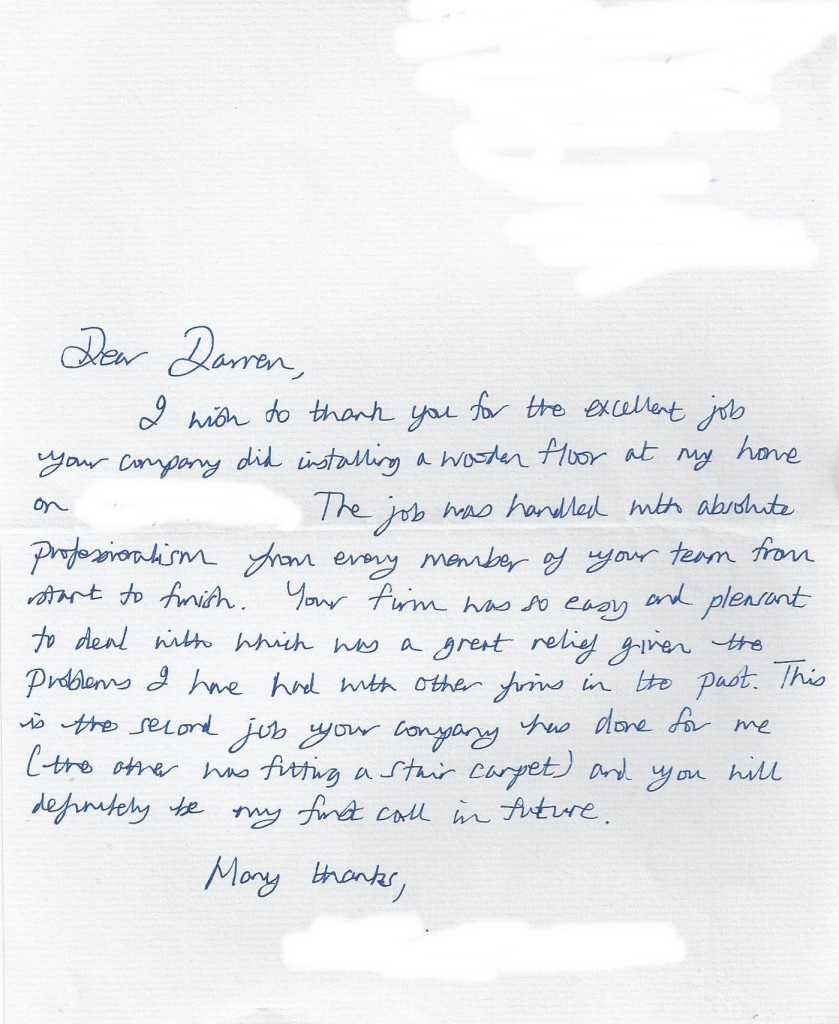 Dear Darren,
I wish to thank you for the excellent job
your company did installing a wooden floor at my home
on
The job was handled with absolute
professionalism from every member of your team from
start to finish. Your firm was so easy and pleasant
to deal with which was a great relief given the
problems I have had with other firms in the past. This
is the second job your company has done for me
(the other was fitting a stair carpet) and you will
definitely be my first call in future.
Many thanks,